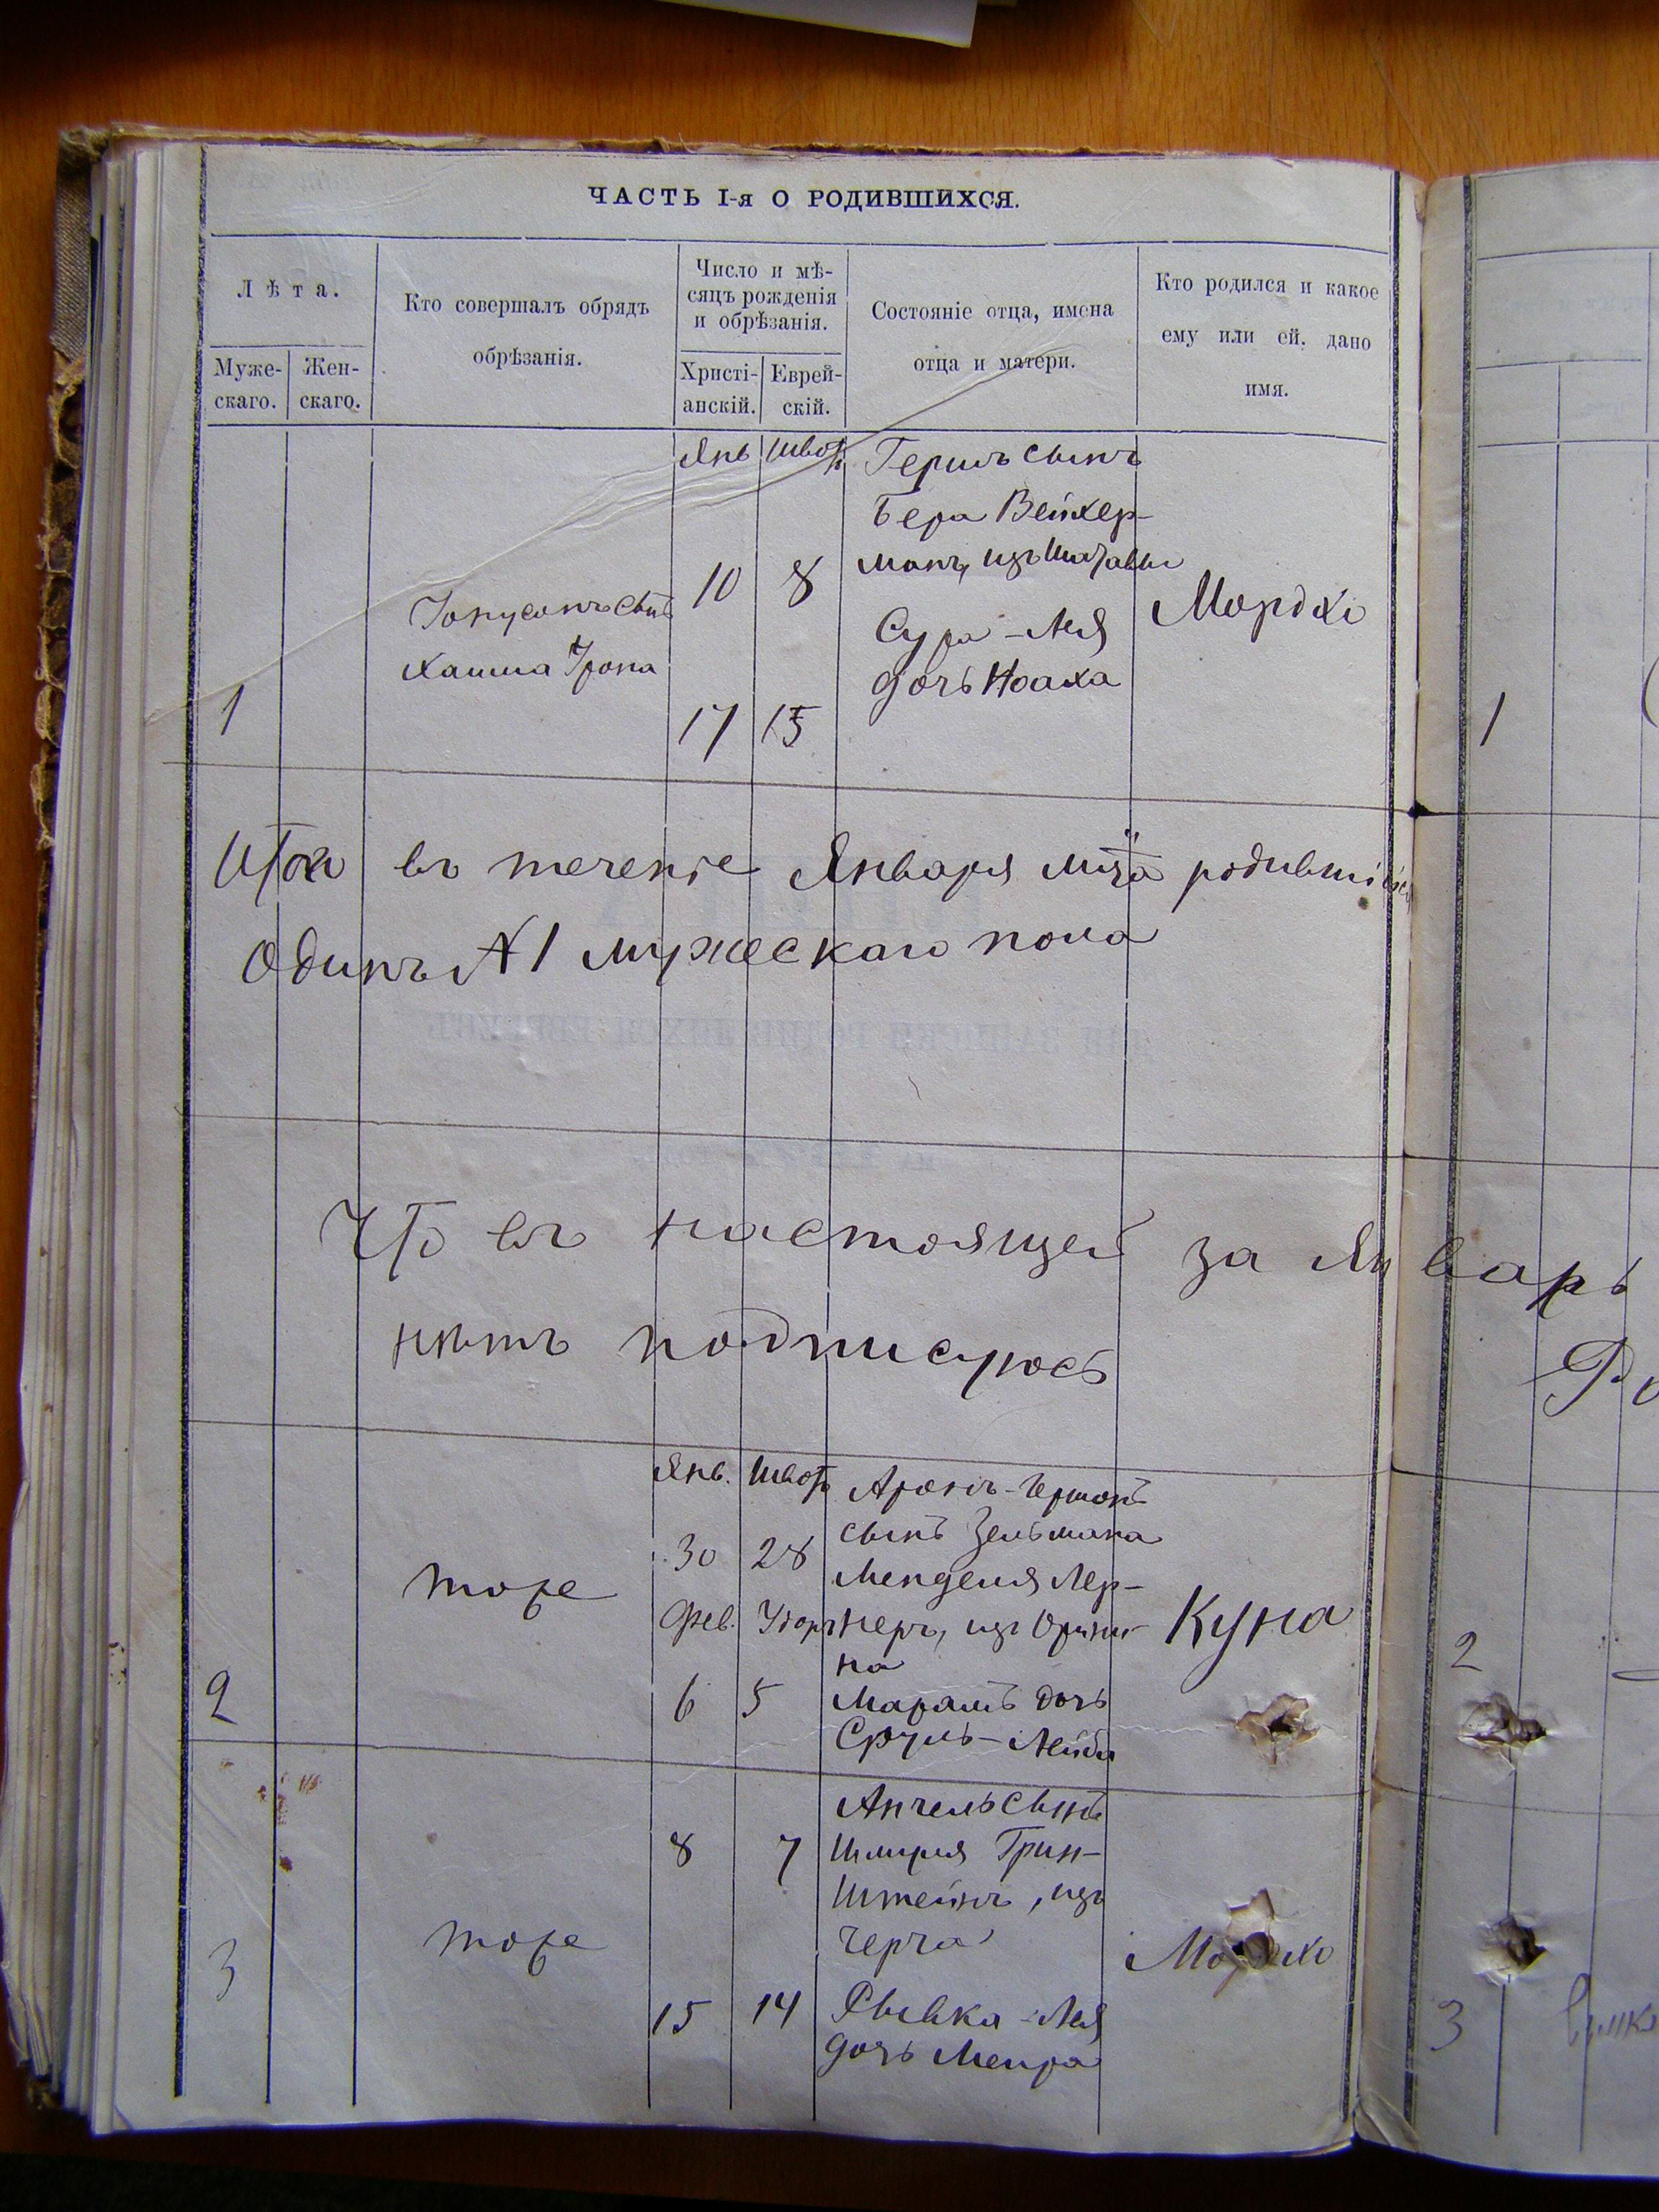 ЧАСТЬ I-я О РОДИВШИХСЯ.
Лѣта.
Муже-
скаго.
Жен-
скаго.
Кто совершалъ обрядъ
обрѣзанія.
Число и мѣ-
сяцъ рожденія
и обрѣзанія.
Христі-
анскій.
Еврей-
скій.
Состояніе отца, имена
отца и матери.
Кто родился и какое
ему или ей, дано
имя.
1
сынъ
Хаима
Янв Швотъ
10 8
17 15
Гершъ сынъ
Бера Вейхер-
манъ, изъ Шатавы
Сура-Лея
дочь Ноаха
Мордхо
1
Итого въ теченіе Января мца родившійся
Одинъ №1 мужескаго пола
Что въ настоящей за Январь
нѣтъ подписуюсь
2
тоже
Янв. Швотъ
30 28
Фев.
6 5
Аронъ-Гершонъ
сынъ Зельмана
Менделя Лер-
неръ, изъ Орыни-
на
дочь
Сруль-Лейбы
Куна
2
3
тоже
8 7
15 14
Анчель сынъ
Шмуля Грин-
штейнъ, изъ
Черча
Рывка-Лея
дочь Меира
Мордхо
3